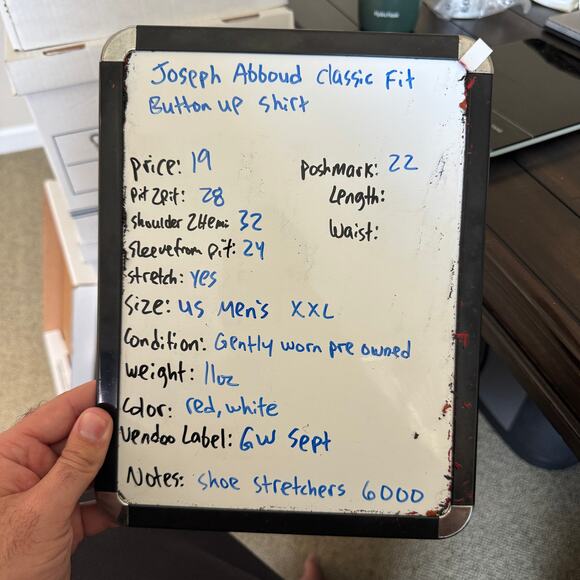 Joseph Abboud Classic Fit
Button up shirt
price: 19
poshmark: 22
pit 2 pit: 28
Length:
shoulder 2 Hem: 32
Waist:
Sleeve from pit: 24
stretch: yes
Size: US Men's XXL
Condition: Gently worn pre owned
weight: 11oz
Color: red, white
Vendoo Label: GW Sept
Notes: Shoe stretchers 6000